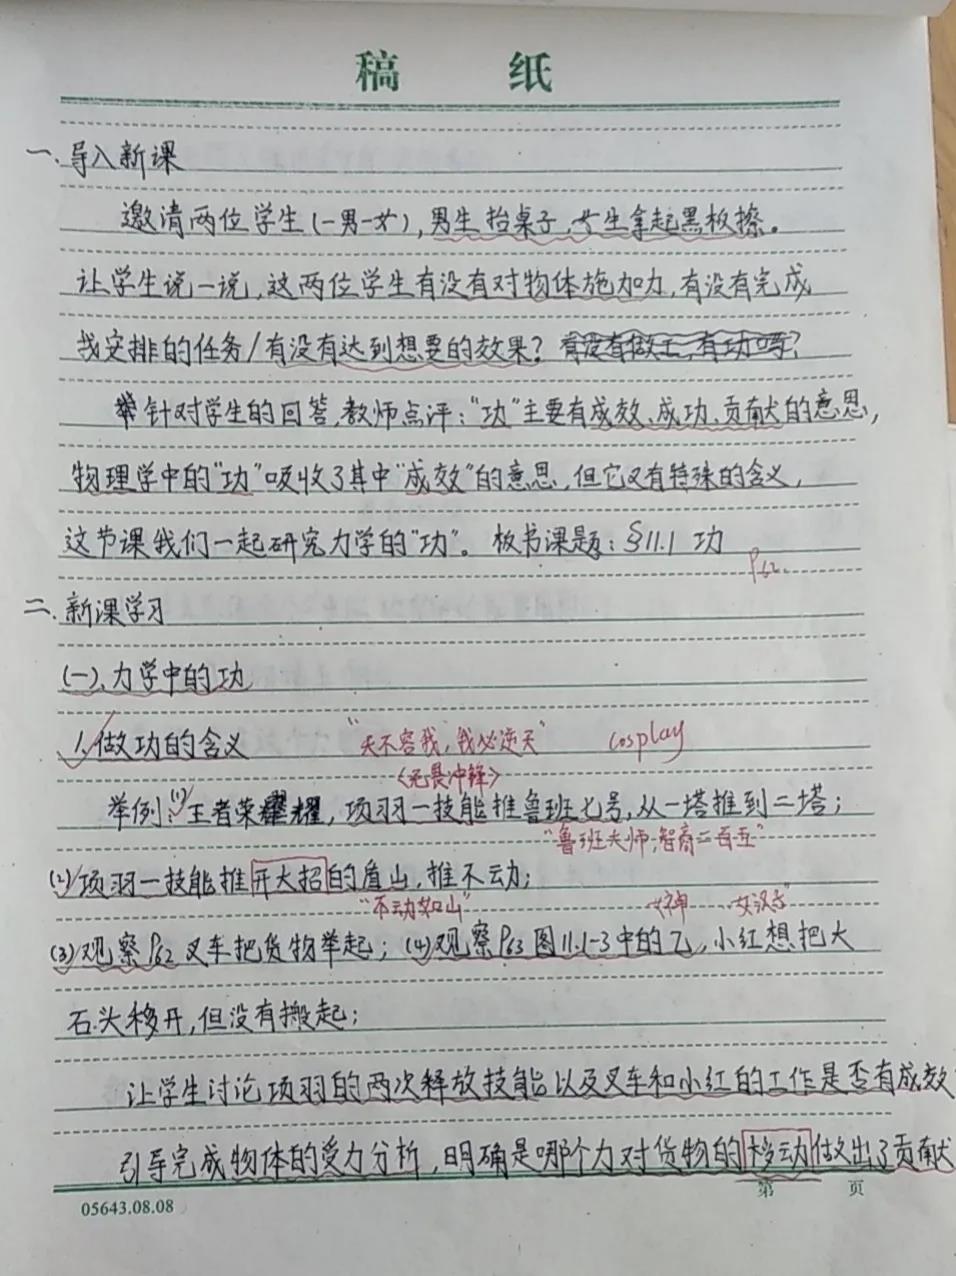 稿 纸
一、导入新课
邀请两位学生(一男一女),男生抬桌子,女生拿起黑板擦。
让学生说一说,这两位学生有没有对物体施加力,有没有完成
我安排的任务/有没有达到想要的效果?有没有做工,有功吗?
针对学生的回答,教师点评:"功"主要有成效、成功、贡献的意思,
物理学中的"功"吸收了其中"成效"的意思,但它又有特殊的含义,
这节课我们一起研究力学的"功"。 板书课题:§11.1 功
P62.
二、新课学习
(一)、力学中的功
1、做功的含义 "天不容我,我必逆天" cosplay
<无畏冲锋>
举例:(1)王者荣耀,项羽一技能推鲁班七号,从一塔推到二塔;
"鲁班大师,智商二百五"
(2)项羽一技能推开大招的盾山,推不动;
"不动如山" 女神 女汉子"
(3)观察P62叉车把货物举起;(4)观察P63图11.1-3中的乙,小红想把大
石头移开,但没有搬起;
让学生讨论项羽的两次释放技能以及叉车和小红的工作是否有成效
引导完成物体的受力分析,明确是哪个力对货物的移动做出了贡献
第 页
05643.08.08